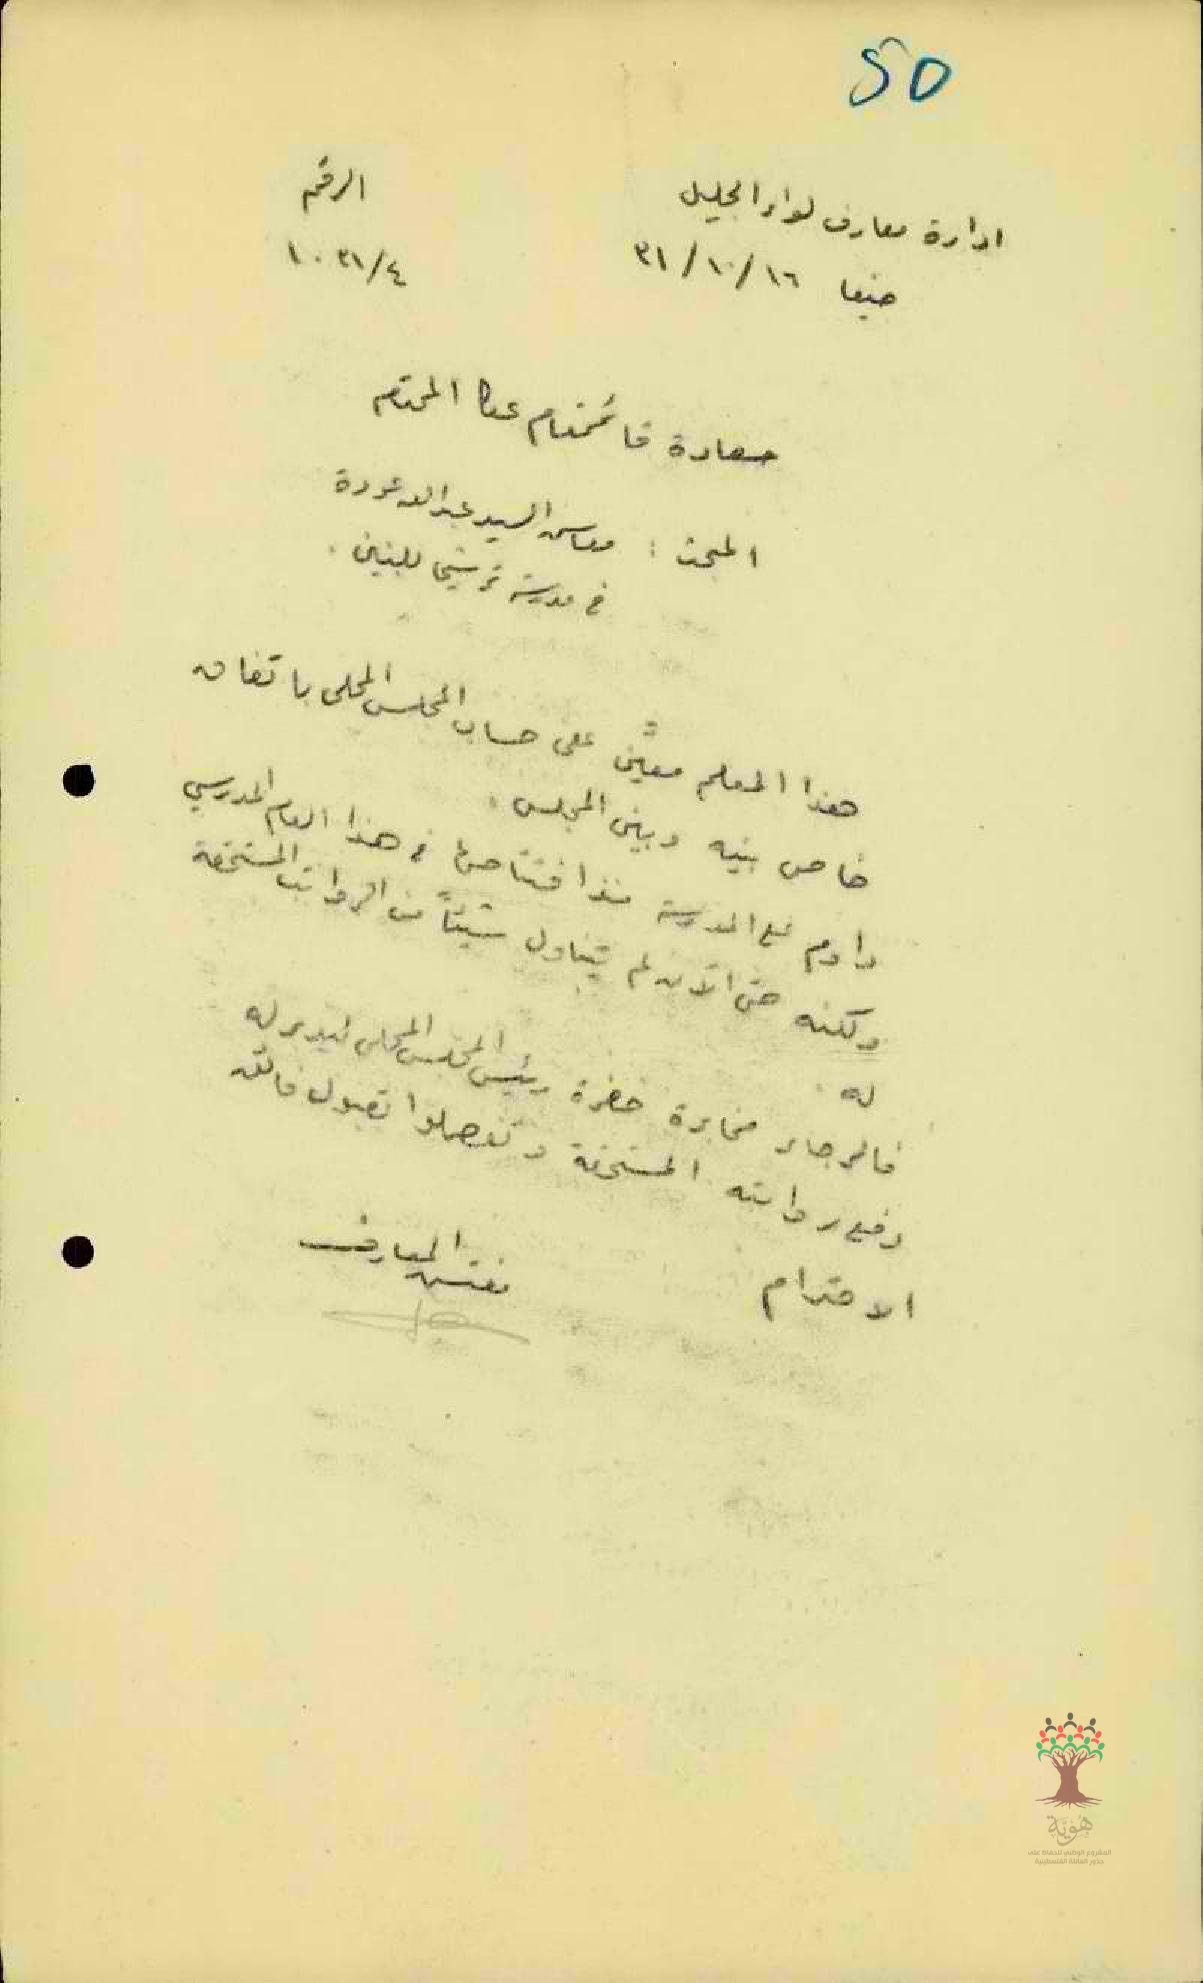 50
ادارة معارف لواء الجليل
الرقم
حيفا ١٦/١٠/٣١
١٠٣١/٤
سعادة قائمقام عكا المحترم
المبحث : معاش السيد عبدالله عودة
في مدرسة ترشيحا للبنين .
هذا المعلم معيَّن على حساب المجلس المحلي باتفاق
خاص بينه وبين المجلس .
داوم على المدرسة منذ افتتاحها في هذا العام المدرسي
ولكنه حتى الآن لم يتناول شيئاً من الرواتب المستحقة
له .
فالرجاء مخابرة حضرة رئيس المجلس المحلي ليدبر له
دفع رواتبه المستحقة وتفضلوا بقبول فائق
الاحترام
مفتش المعارف
هُوِيَّة
المشروع الوطني للحفاظ على
جذور العائلة الفلسطينية